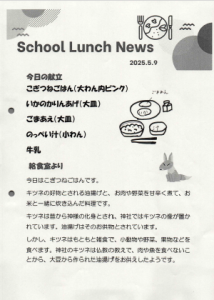 School Lunch News
2025.5.9
今日の献立
こぎつねごはん(大わん内ピンク)
ごまあえ
いかのかりんあげ(大皿)
ごまあえ(大皿)
のっぺい汁(小わん)
牛乳
給食室より
今日はこぎつねごはんです。
キツネの好物とされる油揚げと、お肉や野菜を甘辛く煮て、お
米と一緒に炊き込んだ料理です。
キツネは昔から神様の化身とされ、神社ではキツネの像が置か
れています。油揚げはそのお供物とされています。
しかし、キツネはもともと雑食で、小動物や野菜、果物などを
食べます。神社のキツネは仏教の教えで、肉や魚を食べないこ
とから、大豆から作られた油揚げをお供えしたようです。